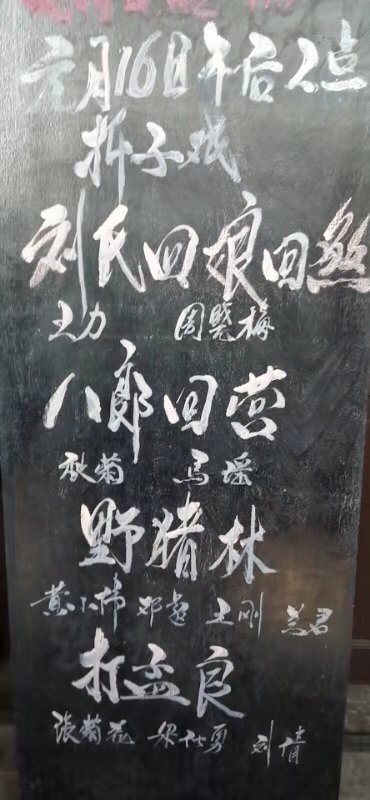 元月16日午后2点
折子戏
刘氏四娘回煞
王力 周晓梅
八郎回营
秋菊 马瑶
野猪林
黄小伟 邓超 王刚 兰君
打孟良
张菊花 梁仕勇 刘倩